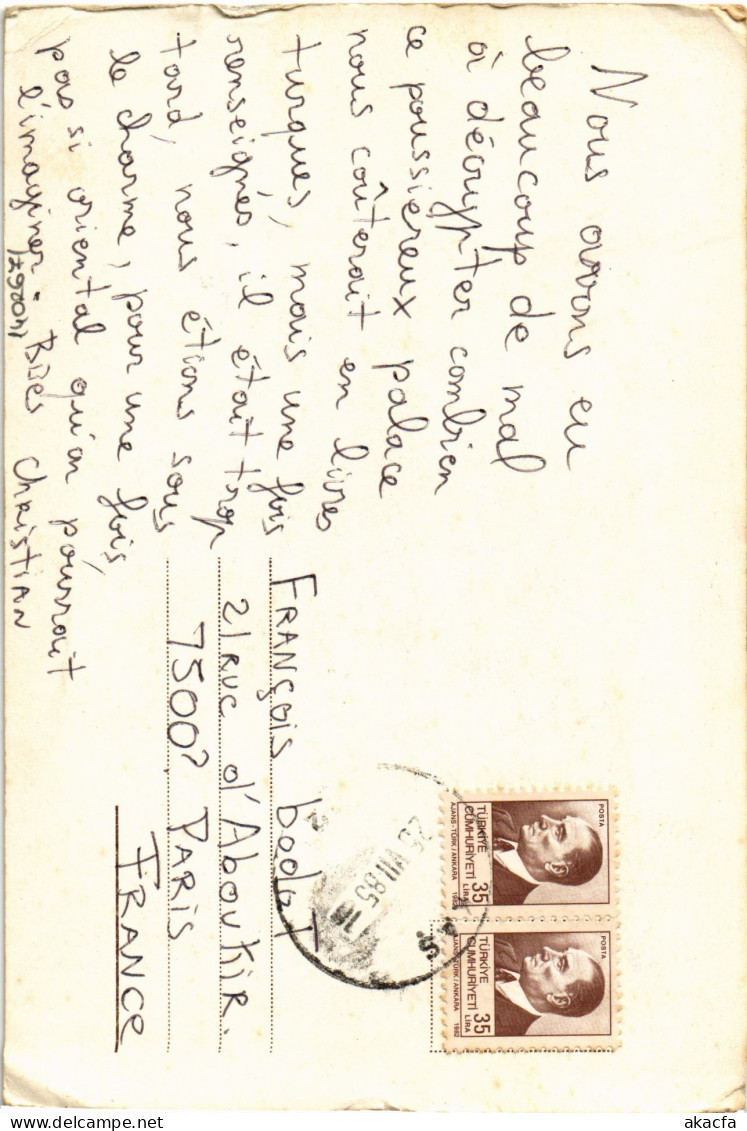 Nous avons eu
beaucoup de mal
à décrypter combien
ce poussiéreux palace
nous coûterait en livres
turques, mais une fois
renseignés, il était trop
tard, nous étions sous
le charme, pour une fois,
pas si oriental qu'on pourrait
l'imaginer. BDes Christian
(140067)
FRANÇOIS
21 RUE d'Aboukir.
7500? PARIS
FRANCE
25 VII.85 16
POSTA
TÜRKİYE
CUMHURİYETİ
35
LİRA
AJANS-TÜRK/ANKARA 1982
POSTA
TÜRKİYE
CUMHURİYETİ
35
LİRA
AJANS-TÜRK/ANKARA 1982
akacfa